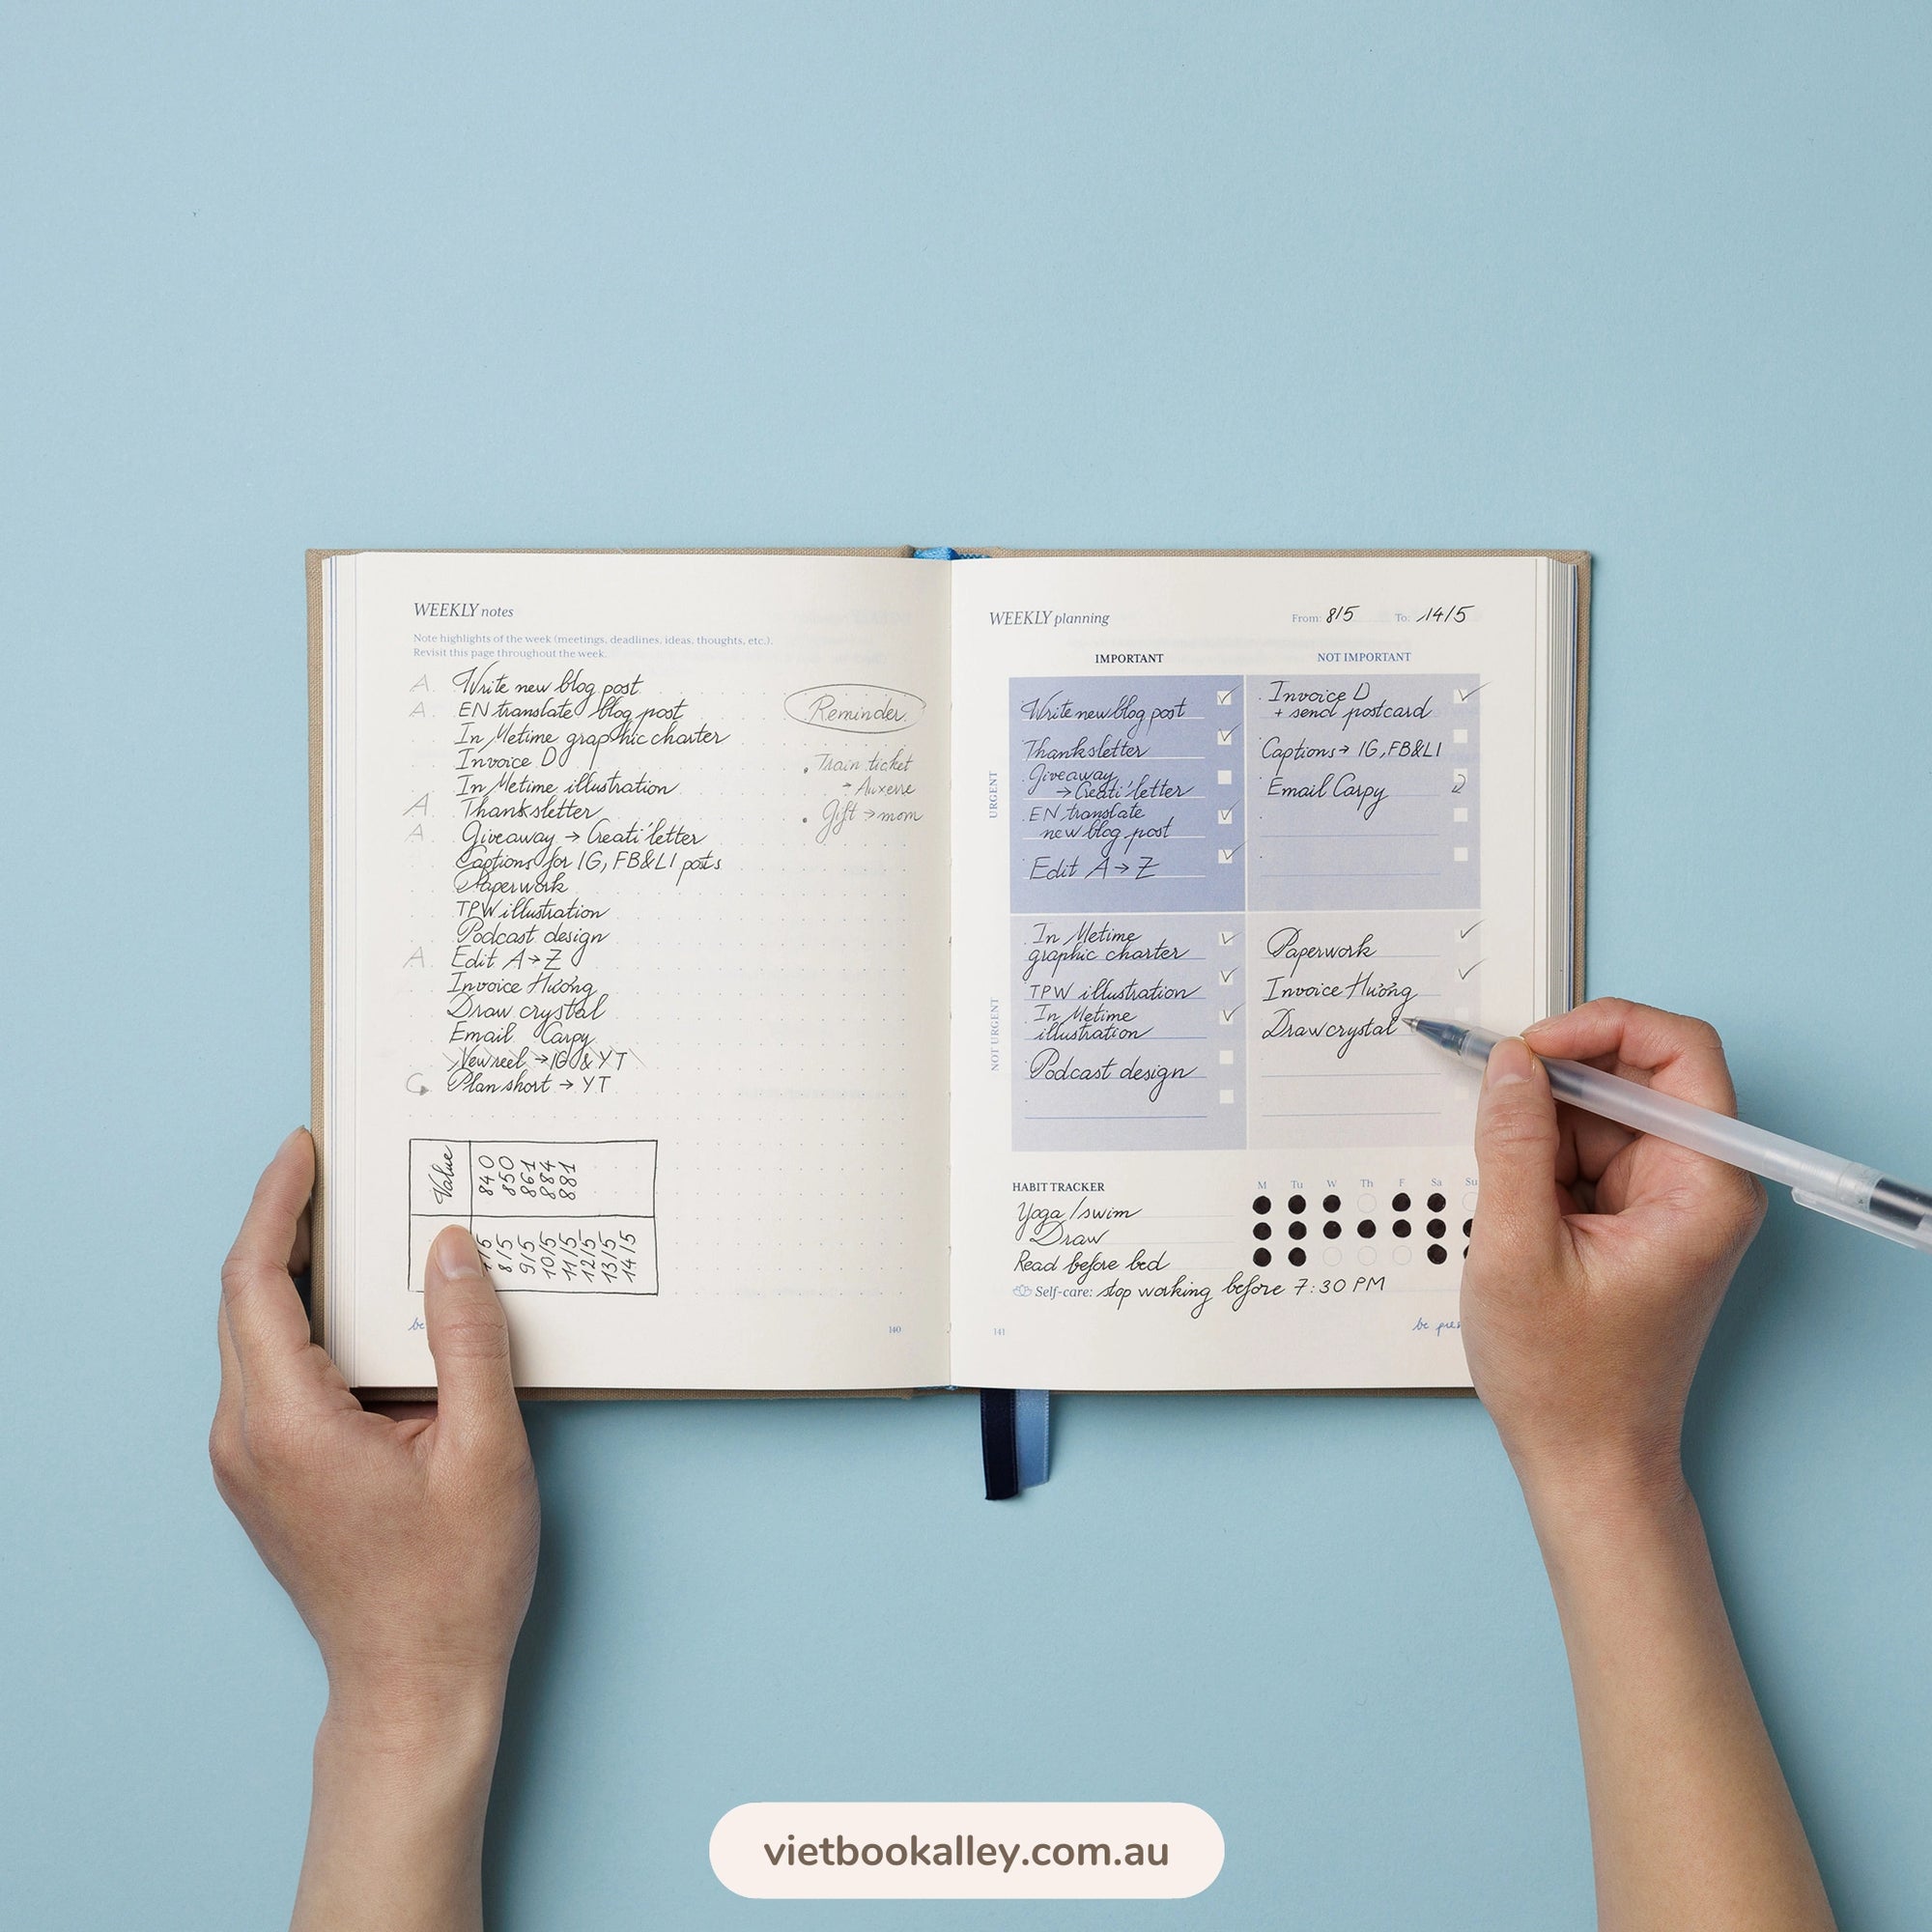 WEEKLY notes
Note highlights of the week (meetings, deadlines, ideas, thoughts, etc.).
Revisit this page throughout the week.
A. Write new blog post
A. EN translate blog post
In Metime graphic charter
Invoice D
In Metime illustration
A. Thanksletter
A. Giveaway → Creati'letter
Captions for IG, FB&LI posts
Paperwork
TPW illustration
Podcast design
A. Edit A→Z
Invoice Hương
Draw crystal
Email Carpy
New reel → IG & YT
Plan short → YT
Reminder
. Train ticket
→ Auxerre
. Gift → mom
Value
840
850
861
884
881
/5
8/5
9/5
10/5
11/5
12/5
13/5
14/5
be
140
WEEKLY planning
From: 8/5 To: 14/5
IMPORTANT
NOT IMPORTANT
URGENT
Write new blog post
Thanksletter
Giveaway
→ Creati'letter
EN translate
new blog post
Edit A→Z
Invoice D
+ send postcard
Captions → IG, FB&LI
Email Carpy
NOT URGENT
In Metime
graphic charter
TPW illustration
In Metime
illustration
Podcast design
Paperwork
Invoice Hương
Draw crystal
HABIT TRACKER
M Tu W Th F Sa Su
Yoga/swim
Draw
Read before bed
Self-care: stop working before 7:30 PM
141
be
vietbookalley.com.au